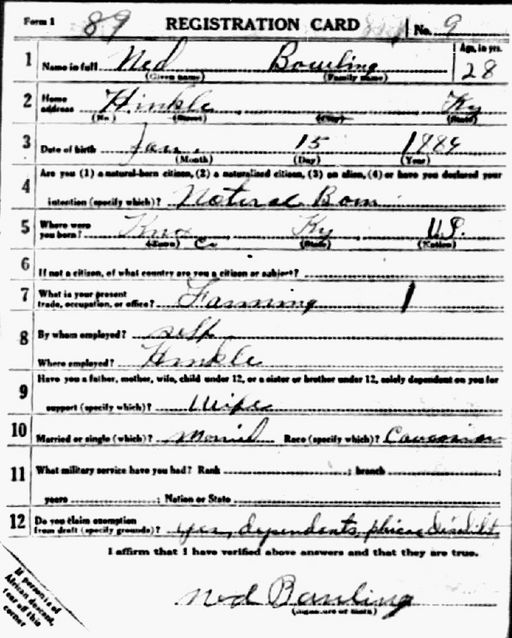 Form 1 89 REGISTRATION CARD No. 9
1 Name in full Ned Bowling Age, in yrs. 28
(Given name) (Family name)
2 Home address Hinkle Ky
(No.) (Street) (City) (State)
3 Date of birth Jan. 15
(Month) (Day) (Year)
4 Are you (1) a natural-born citizen, (2) a naturalized citizen, (3) an alien, (4) or have you declared your
intention (specify which)? Natural Born
5 Where were you born? Knox Co Ky U.S.
(Town) (State) (Nation)
6 If not a citizen, of what country are you a citizen or subject?
7 What is your present trade, occupation, or office? Farming
8 By whom employed? self
Where employed? Hinkle
9 Have you a father, mother, wife, child under 12, or a sister or brother under 12, solely dependent on you for
support (specify which)? Wife
10 Married or single (which)? Married Race (specify which)? Caucasian
11 What military service have you had? Rank ; branch ;
years ; Nation or State
12 Do you claim exemption from draft (specify grounds)? yes, dependents,
I affirm that I have verified above answers and that they are true.
Ned Bowling
(Signature or mark)
If person is of African descent, tear off this corner